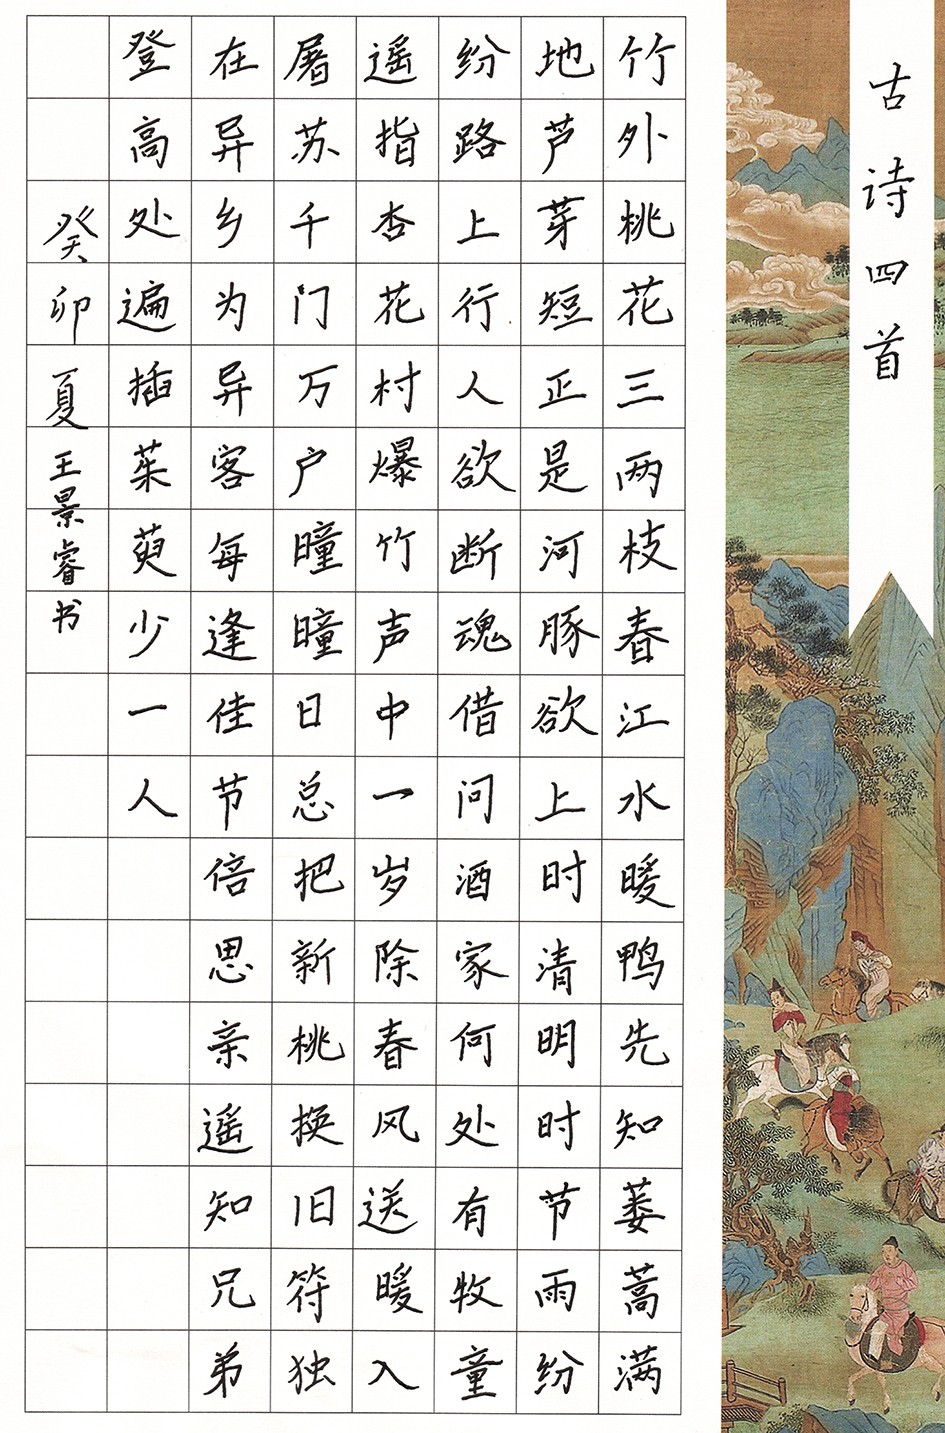 古诗四首
竹外桃花三两枝春江水暖鸭先知蒌蒿满
地芦芽短正是河豚欲上时清明时节雨纷
纷路上行人欲断魂借问酒家何处有牧童
遥指杏花村爆竹声中一岁除春风送暖入
屠苏千门万户曈曈日总把新桃换旧符独
在异乡为异客每逢佳节倍思亲遥知兄弟
登高处遍插茱萸少一人
癸卯夏王景睿书